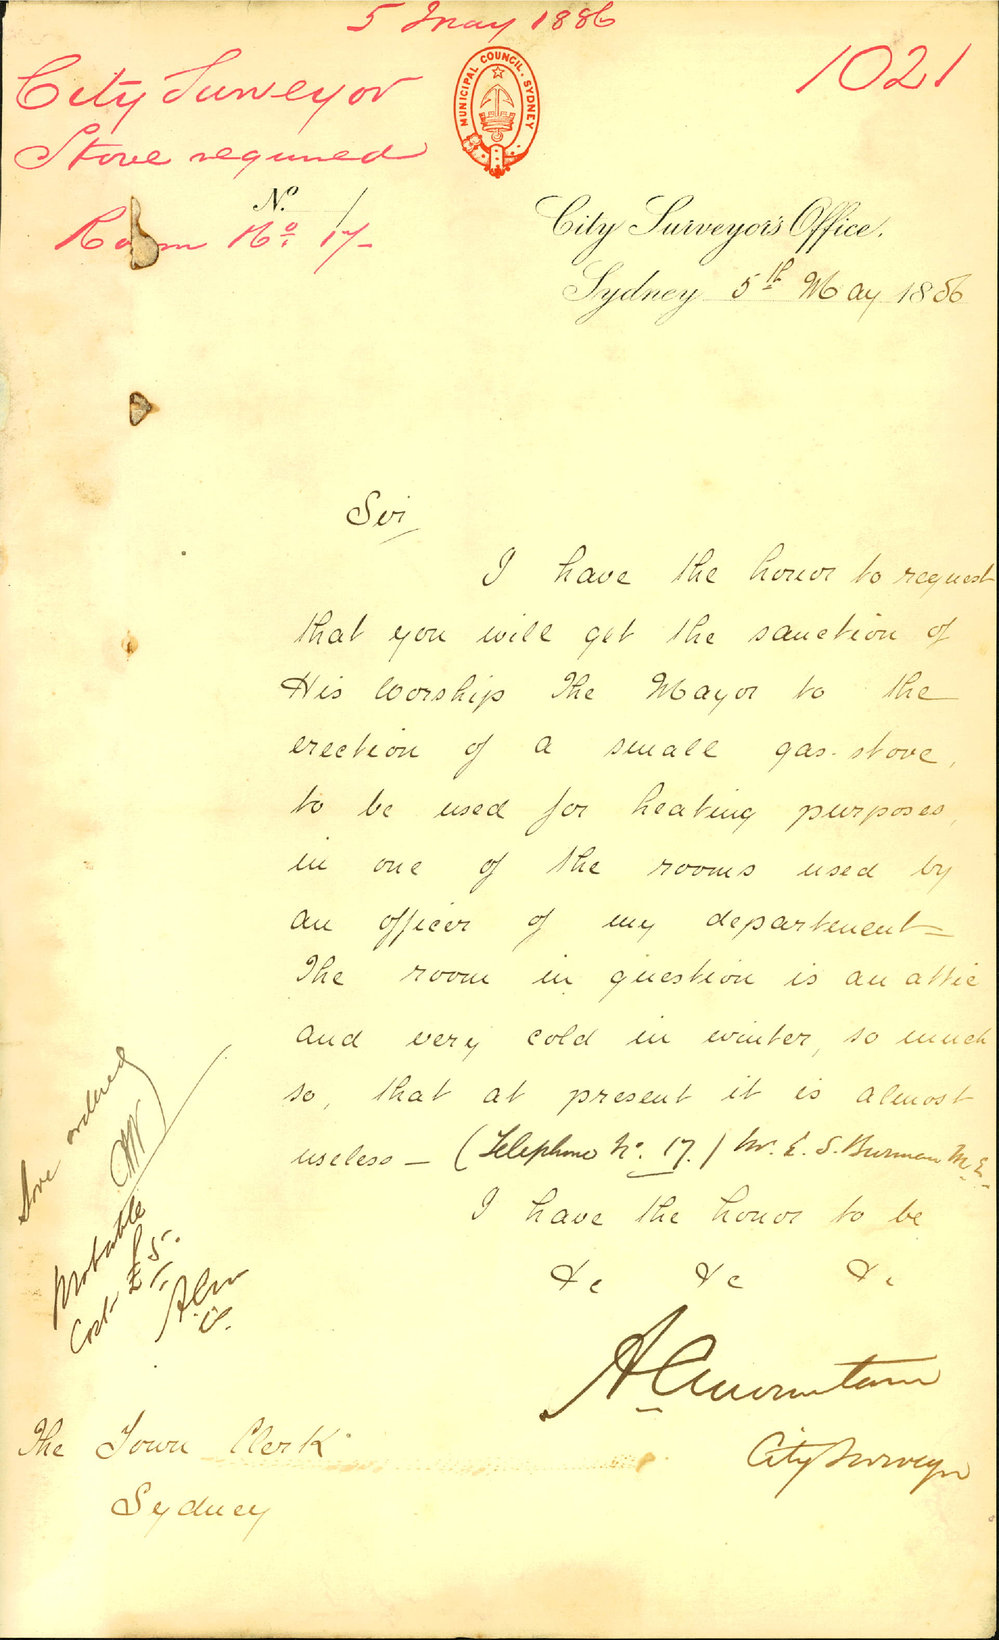 5 May 1886
1021
City Surveyor
Stove required
Room No. 17-
MUNICIPAL COUNCIL. SYDNEY
No.
City Surveyor's Office.
Sydney 5th May 1886
Sir
I have the honor to request
that you will get the sanction of
His Worship The Mayor to the
erection of a small gas-stove,
to be used for heating purposes,
in one of the rooms used by
an officer of my department—
The room in question is an attic
and very cold in winter, so much
so, that at present it is almost
useless — (Telephone No. 17.) Mr. E. S.
I have the honor to be
&c &c &c
City Surveyor
The Town Clerk
Sydney
Stove ordered
Probable
Cost £5.